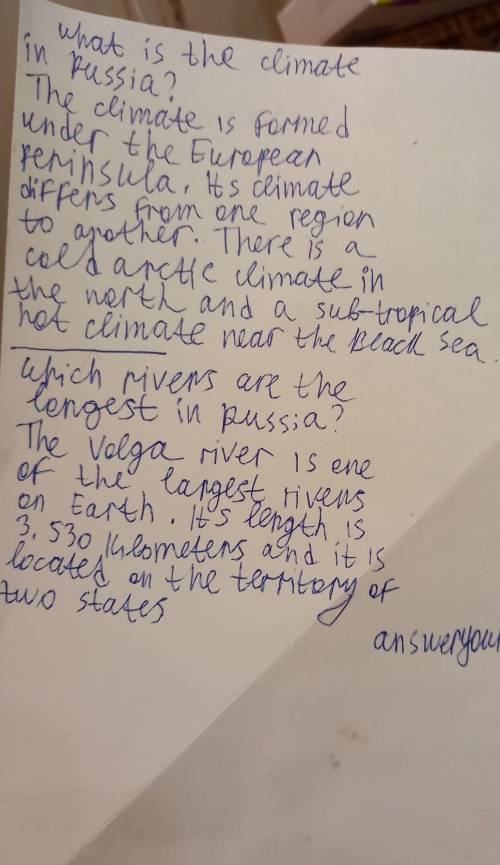 what is the climate
in Russia?
The climate is formed
under the European
peninsula. Its climate
differs from one region
to another. There is a
cold arctic climate in
the north and a sub-tropical
hot climate near the Black Sea.
Which rivers are the
longest in Russia?
The Volga river is one
of the largest rivers
on Earth. It's length is
3.530 kilometers and it is
located on the territory of
two states
answeryour